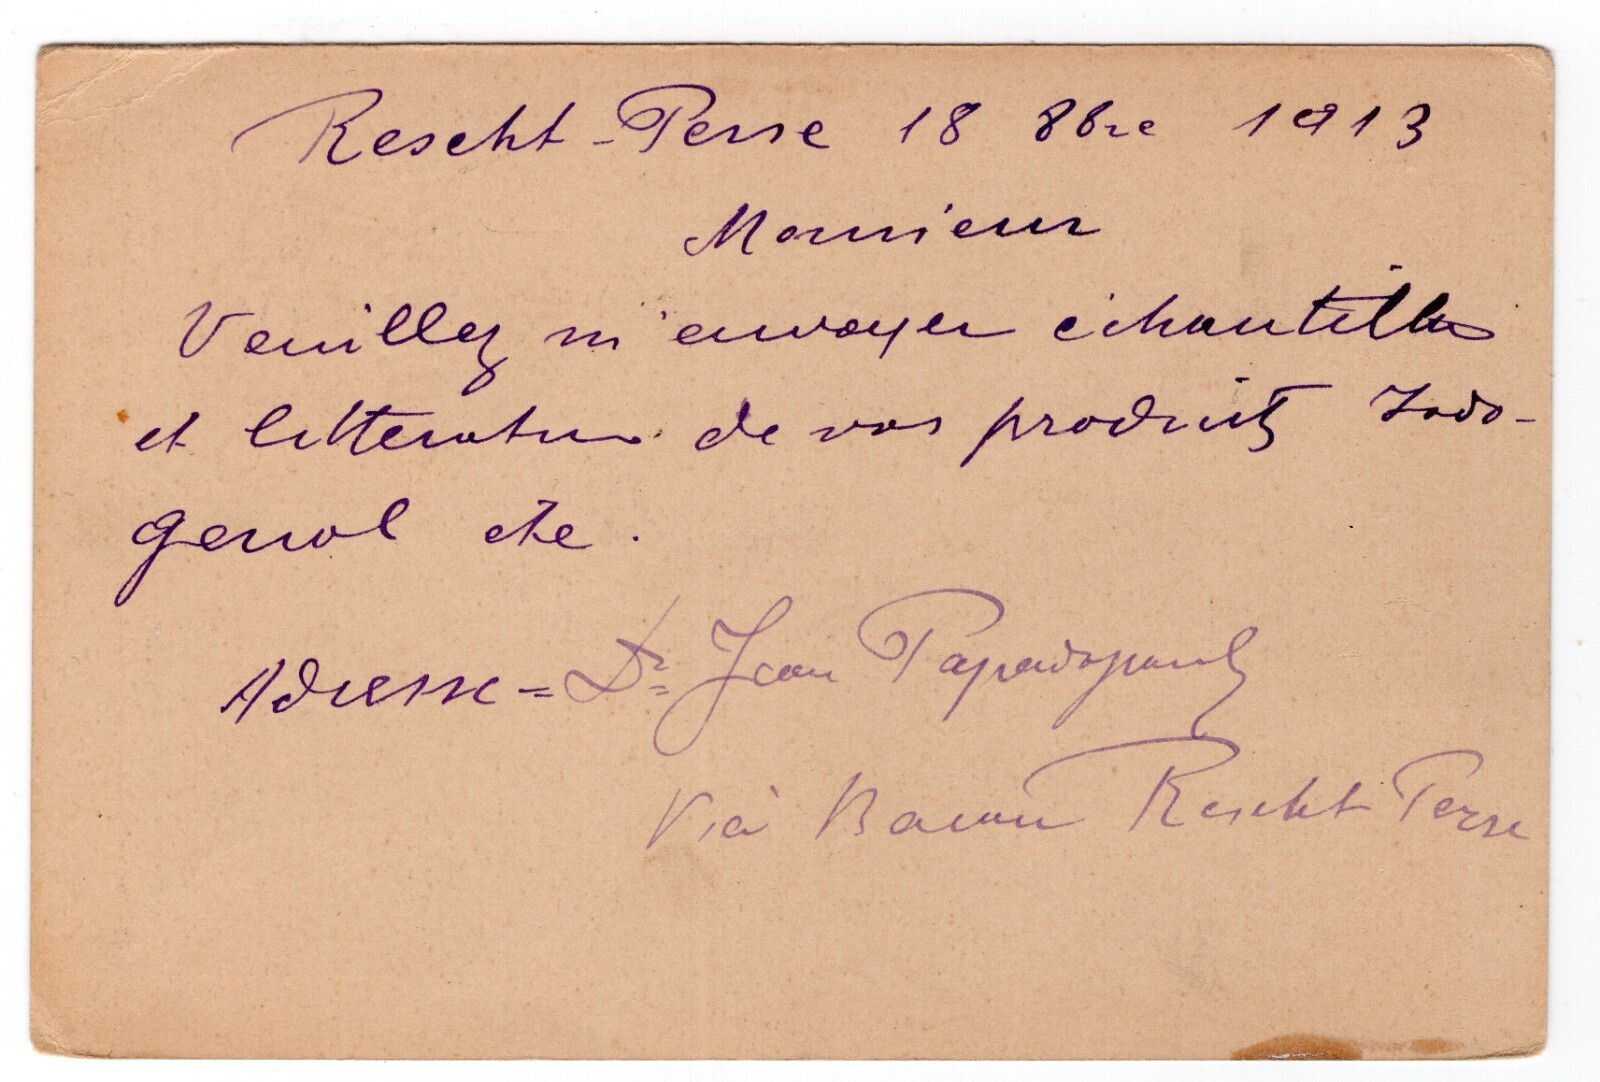 Rescht - Perse 18 8bre 1913
Monsieur
Veuillez m'envoyer échantillons
et litterature de vos produits Iodo-
genol etc.
Adresse = Dr Jean Papadopoul
Vià Bacou Rescht Perse